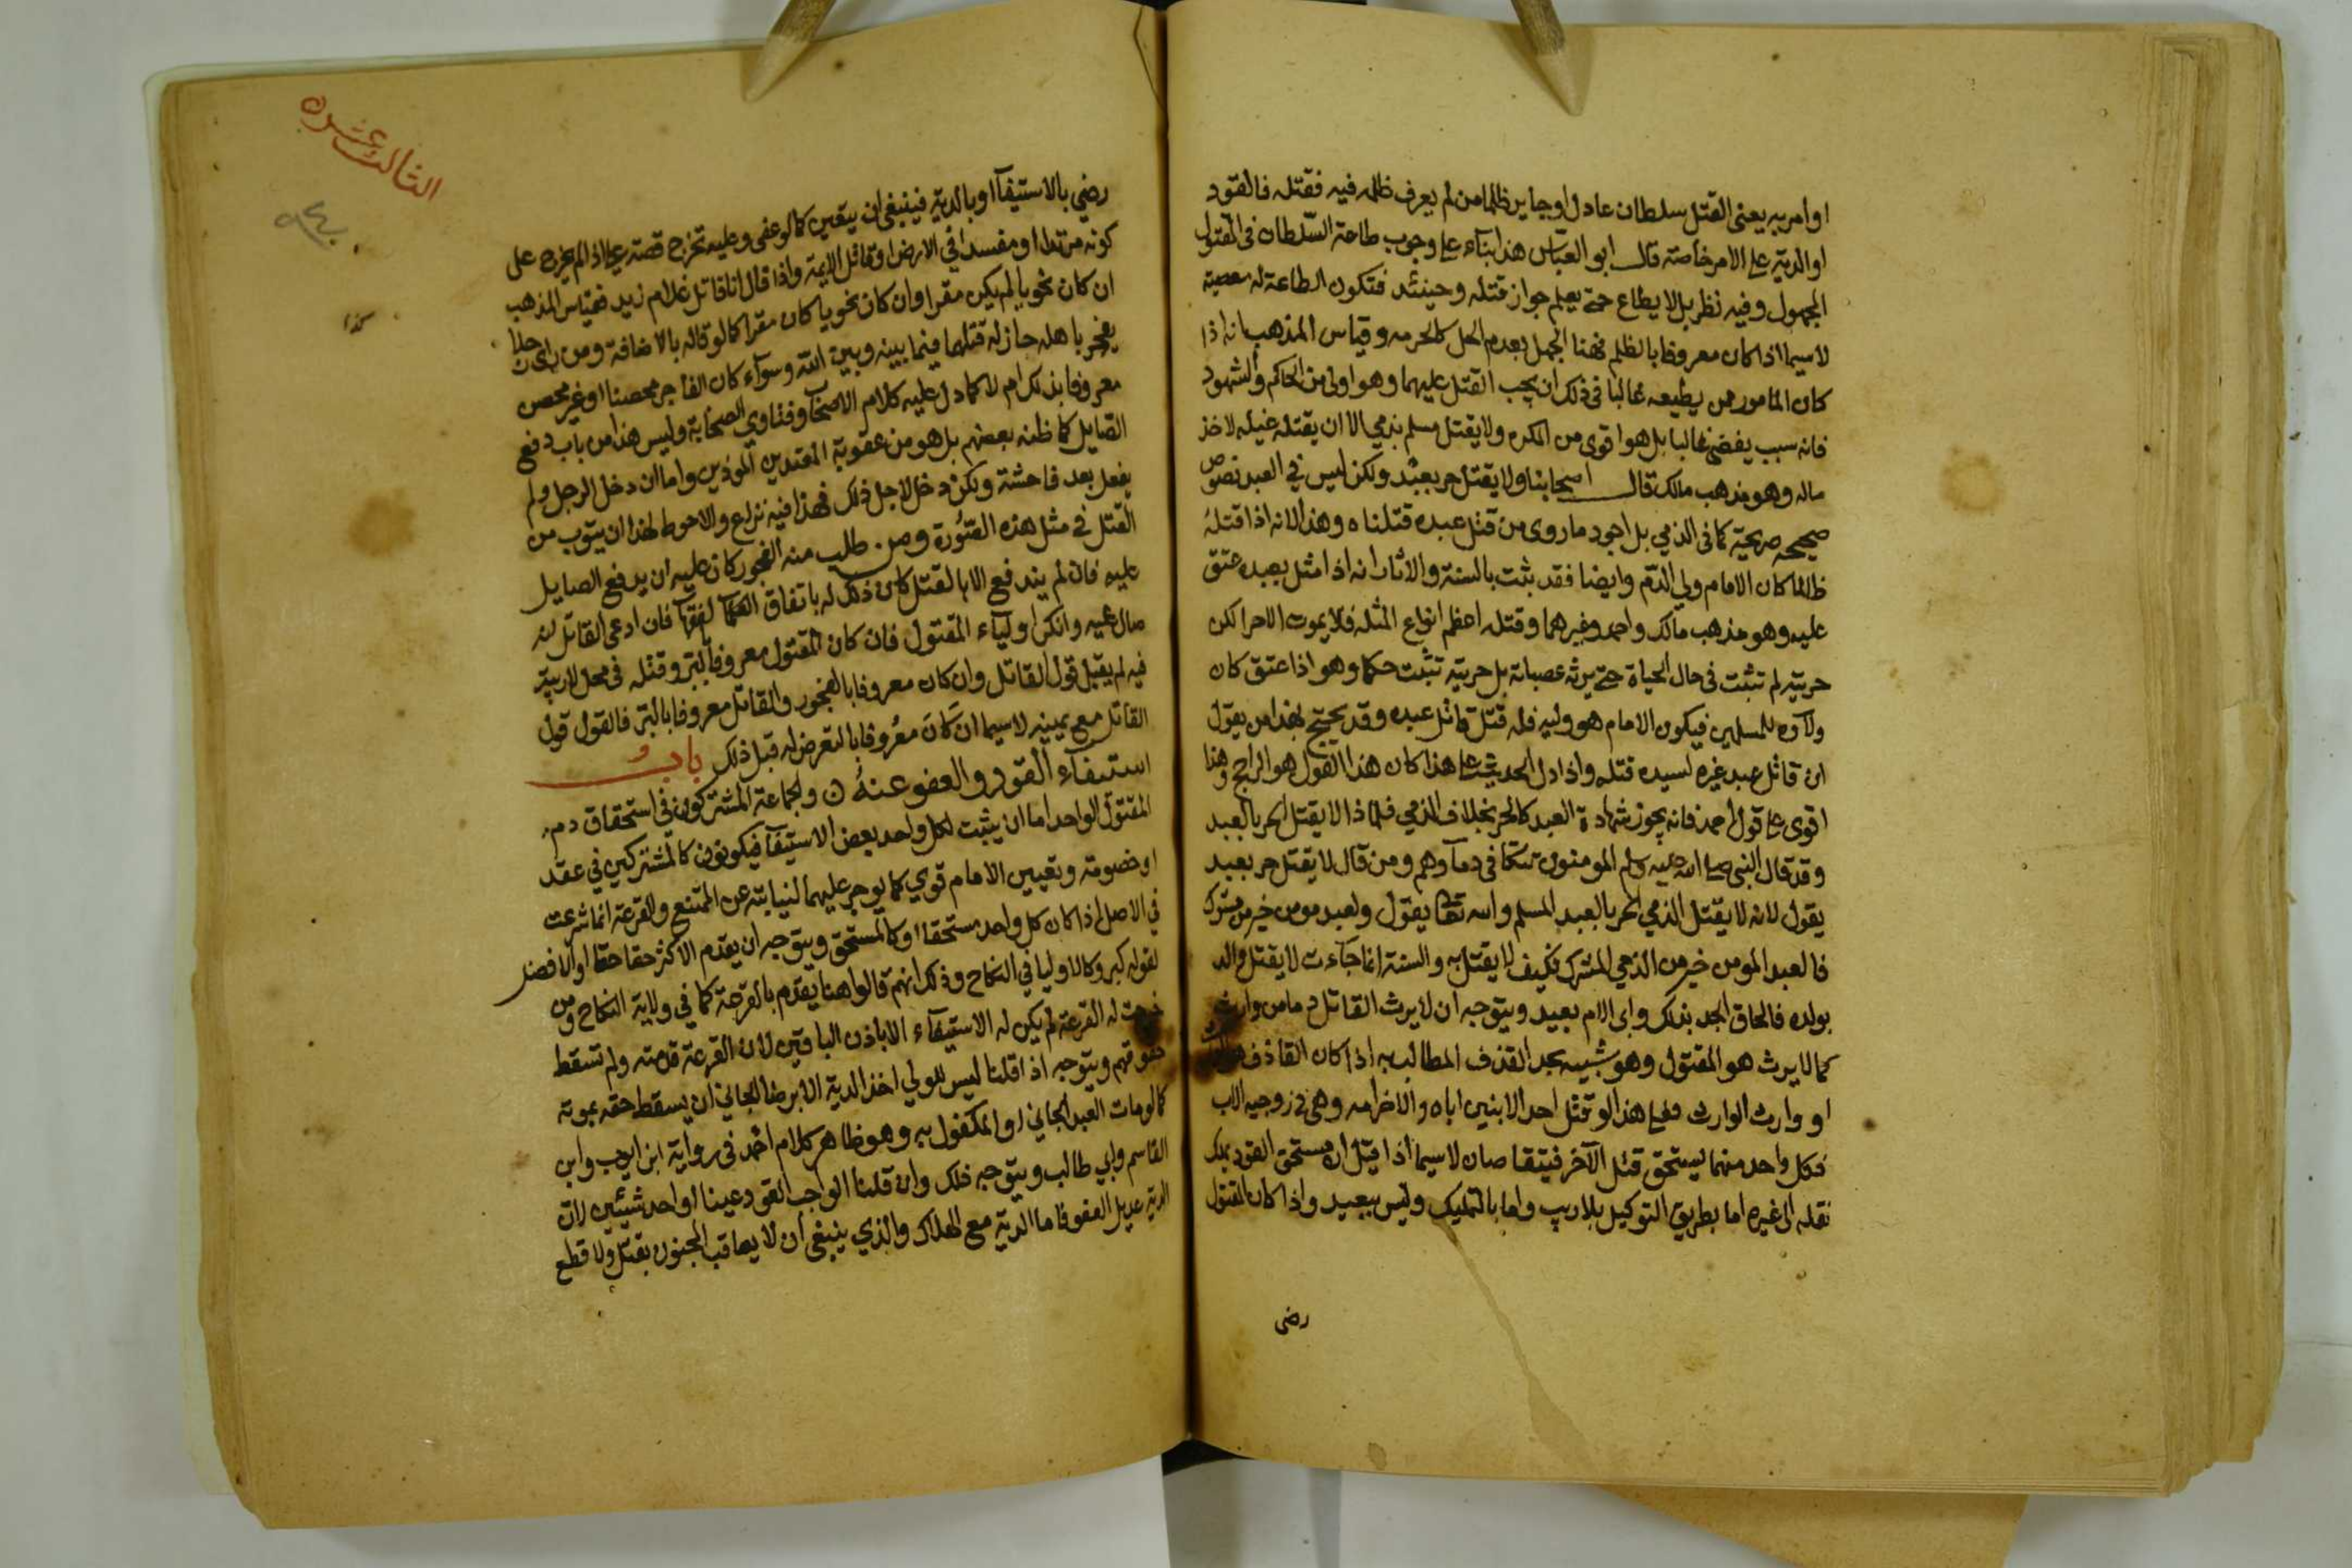 او امر به يعنى القتل سلطان عادل او جاير ظلما من لم يعرف ظلمه فيه فقتله فالقود
او الدية على الامر خاصة قال ابو العباس هذا بناء على وجوب طاعة السلطان فى القتل
المجهول وفيه نظر بل لا يطاع حتى يعلم جواز قتله وحينئذ فتكون الطاعة له معصية
لاسيما اذا كان معروفا بالظلم فهنا الجهل بعدم الحل كالعلم بالحرمه وقياس المذهب انه اذا
كان المامور ممن يطيعه غالبا فى ذلك انه يجب القتل عليهما وهو اولى من الحاكم والشهود
فانه سبب يفضى غالبا بل هو اقوى من المكره ولا يقتل مسلم بذمي الا ان يقتله غيلة لاخذ
ماله وهو مذهب مالك قال اصحابنا ولا يقتل حر بعبد ولكن ليس في العبد نصوص
صحيحه صريحة كما فى الذمي بل اجود ما روى من قتل عبده قتلناه وهذا لانه اذا قتله
ظالما كان الامام ولي الدم وايضا فقد ثبت بالسنة والاثار انه اذا مثل بعبده عتق
عليه وهو مذهب مالك واحمد وغيرهما وقتله اعظم انواع المثله فلا يموت الا حرا لكن
حريته لم تثبت فى حال الحياة حتى يرثه عصباته بل حريته تثبت حكما وهو اذا عتق كان
ولاؤه للمسلمين فيكون الامام هو وليه فله قتل قاتل عبده وقد يحتج بهذا من يقول
ان قاتل عبد غيره لسيده قتله واذا دل الحديث على هذا كان هذا القول هو الراجح وهذا
اقوى على قول احمد فانه يجوز شهادة العبد كالحر بخلاف الذمي فلماذا لا يقتل الحر بالعبد
وقد قال النبى صلى الله عليه وسلم المومنون تتكافى دماوهم ومن قال لا يقتل حر بعبد
يقول لانه لا يقتل الذمي الحر بالعبد المسلم والله تعالى يقول ولعبد مومن خير من مشرك
فالعبد المومن خير من الذمي المشرك فكيف لا يقتل به والسنة انما جاءت لا يقتل والد
بولده فالحاق الجد بذلك وابى الام بعيد ويتوجه ان لا يرث القاتل دما من وارث
كما لا يرث هو المقتول وهو شبيه بحد القذف المطالب به اذا كان القاذف
او وارث الوارث فعلى هذا لو قتل احد الابنين اباه والاخر امه وهى فى زوجيه الاب
فكل واحد منهما يستحق قتل الآخر فيتقاصان لاسيما اذا قيل ان مستحق القود يملك
نقله الى غيره اما بطريق التوكيل بلا ريب واما بالتمليك وليس ببعيد واذا كان المقتول
رضى
الثالث عشره
كذا
رضي بالاستيفآ او بالدية فينبغى ان يتعين كما لو عفى وعليه تخرج قصة علي اذ لم يخرج على
كونه مرتدا او مفسدا في الارض او قاتل الايمة واذا قال انا قاتل غلام زيد فقياس المذهب
ان كان نحويا لم يكن مقرا وان كان غير نحويا كان مقرا كما لو قاله بالاضافة ومن راى رجلا
يفجر باهله جاز له قتلهما فيما بينه وبين الله وسوآء كان الفاجر محصنا او غير محصن
معروفا بذلك ام لا كما دل عليه كلام الاصحاب وفتاوي الصحابة وليس هذا من باب دفع
الصايل كما ظنه بعضهم بل هو من عقوبة المعتدين الموذين واما ان دخل الرجل ولم
يفعل بعد فاحشة ولكن دخل لاجل ذلك فهذا فيه نزاع والاحوط لهذا ان يتوب من
القتل في مثل هذه الصورة ومن طلب منه الفجور كان عليه ان يدفع الصايل
عليه فان لم يندفع الا بالقتل كان ذلك له باتفاق الفقهآ فان ادعى القاتل انه
صال عليه وانكر اولياء المقتول فان كان المقتول معروفا بالبر وقتله فى محل لا ريبة
فيه لم يقبل قول القاتل وان كان معروفا بالفجور والقاتل معروفا بالبر فالقول قول
القاتل مع يمينه لاسيما ان كان معروفا بالتعرض له قبل ذلك باب
استيفآء القود والعفو عنه ن والجماعة المشتركون في استحقاق دم
المقتول الواحد اما ان يثبت لكل واحد بعض الاستيفآ فيكونون كالمشتركين في عقد
او خصومة وتعيين الامام قوي كما يوجر عليهما لنيابته عن الممتنع والقرعة انما شرعت
في الاصل اذا كان كل واحد مستحقا او كالمستحق ويتوجه ان يقدم الاكثر حقا او الافضل
لقوله كبر وكالاوليا في النكاح وذلك انهم قالوا هنا يقدم بالقرعة كما في ولاية النكاح ومن
خرجت له القرعة لم يكن له الاستيفآء الا باذن الباقين لان القرعة قدمته ولم تسقط
حقوقهم ويتوجه اذا قلنا ليس للولي اخذ الدية الا برضا الجاني ان يسقط حقه بموته
كما لو مات العبد الجاني او المكفول به وهو ظاهر كلام احمد فى رواية ابن ايوب وابن
القاسم وابي طالب ويتوجه ذلك وان قلنا الواجب القود عينا او احد شيئين لان
الدية عديل العفو فاما الدية مع الهلاك والذي ينبغى ان لا يعاقب المجنون بقتل ولا قطع